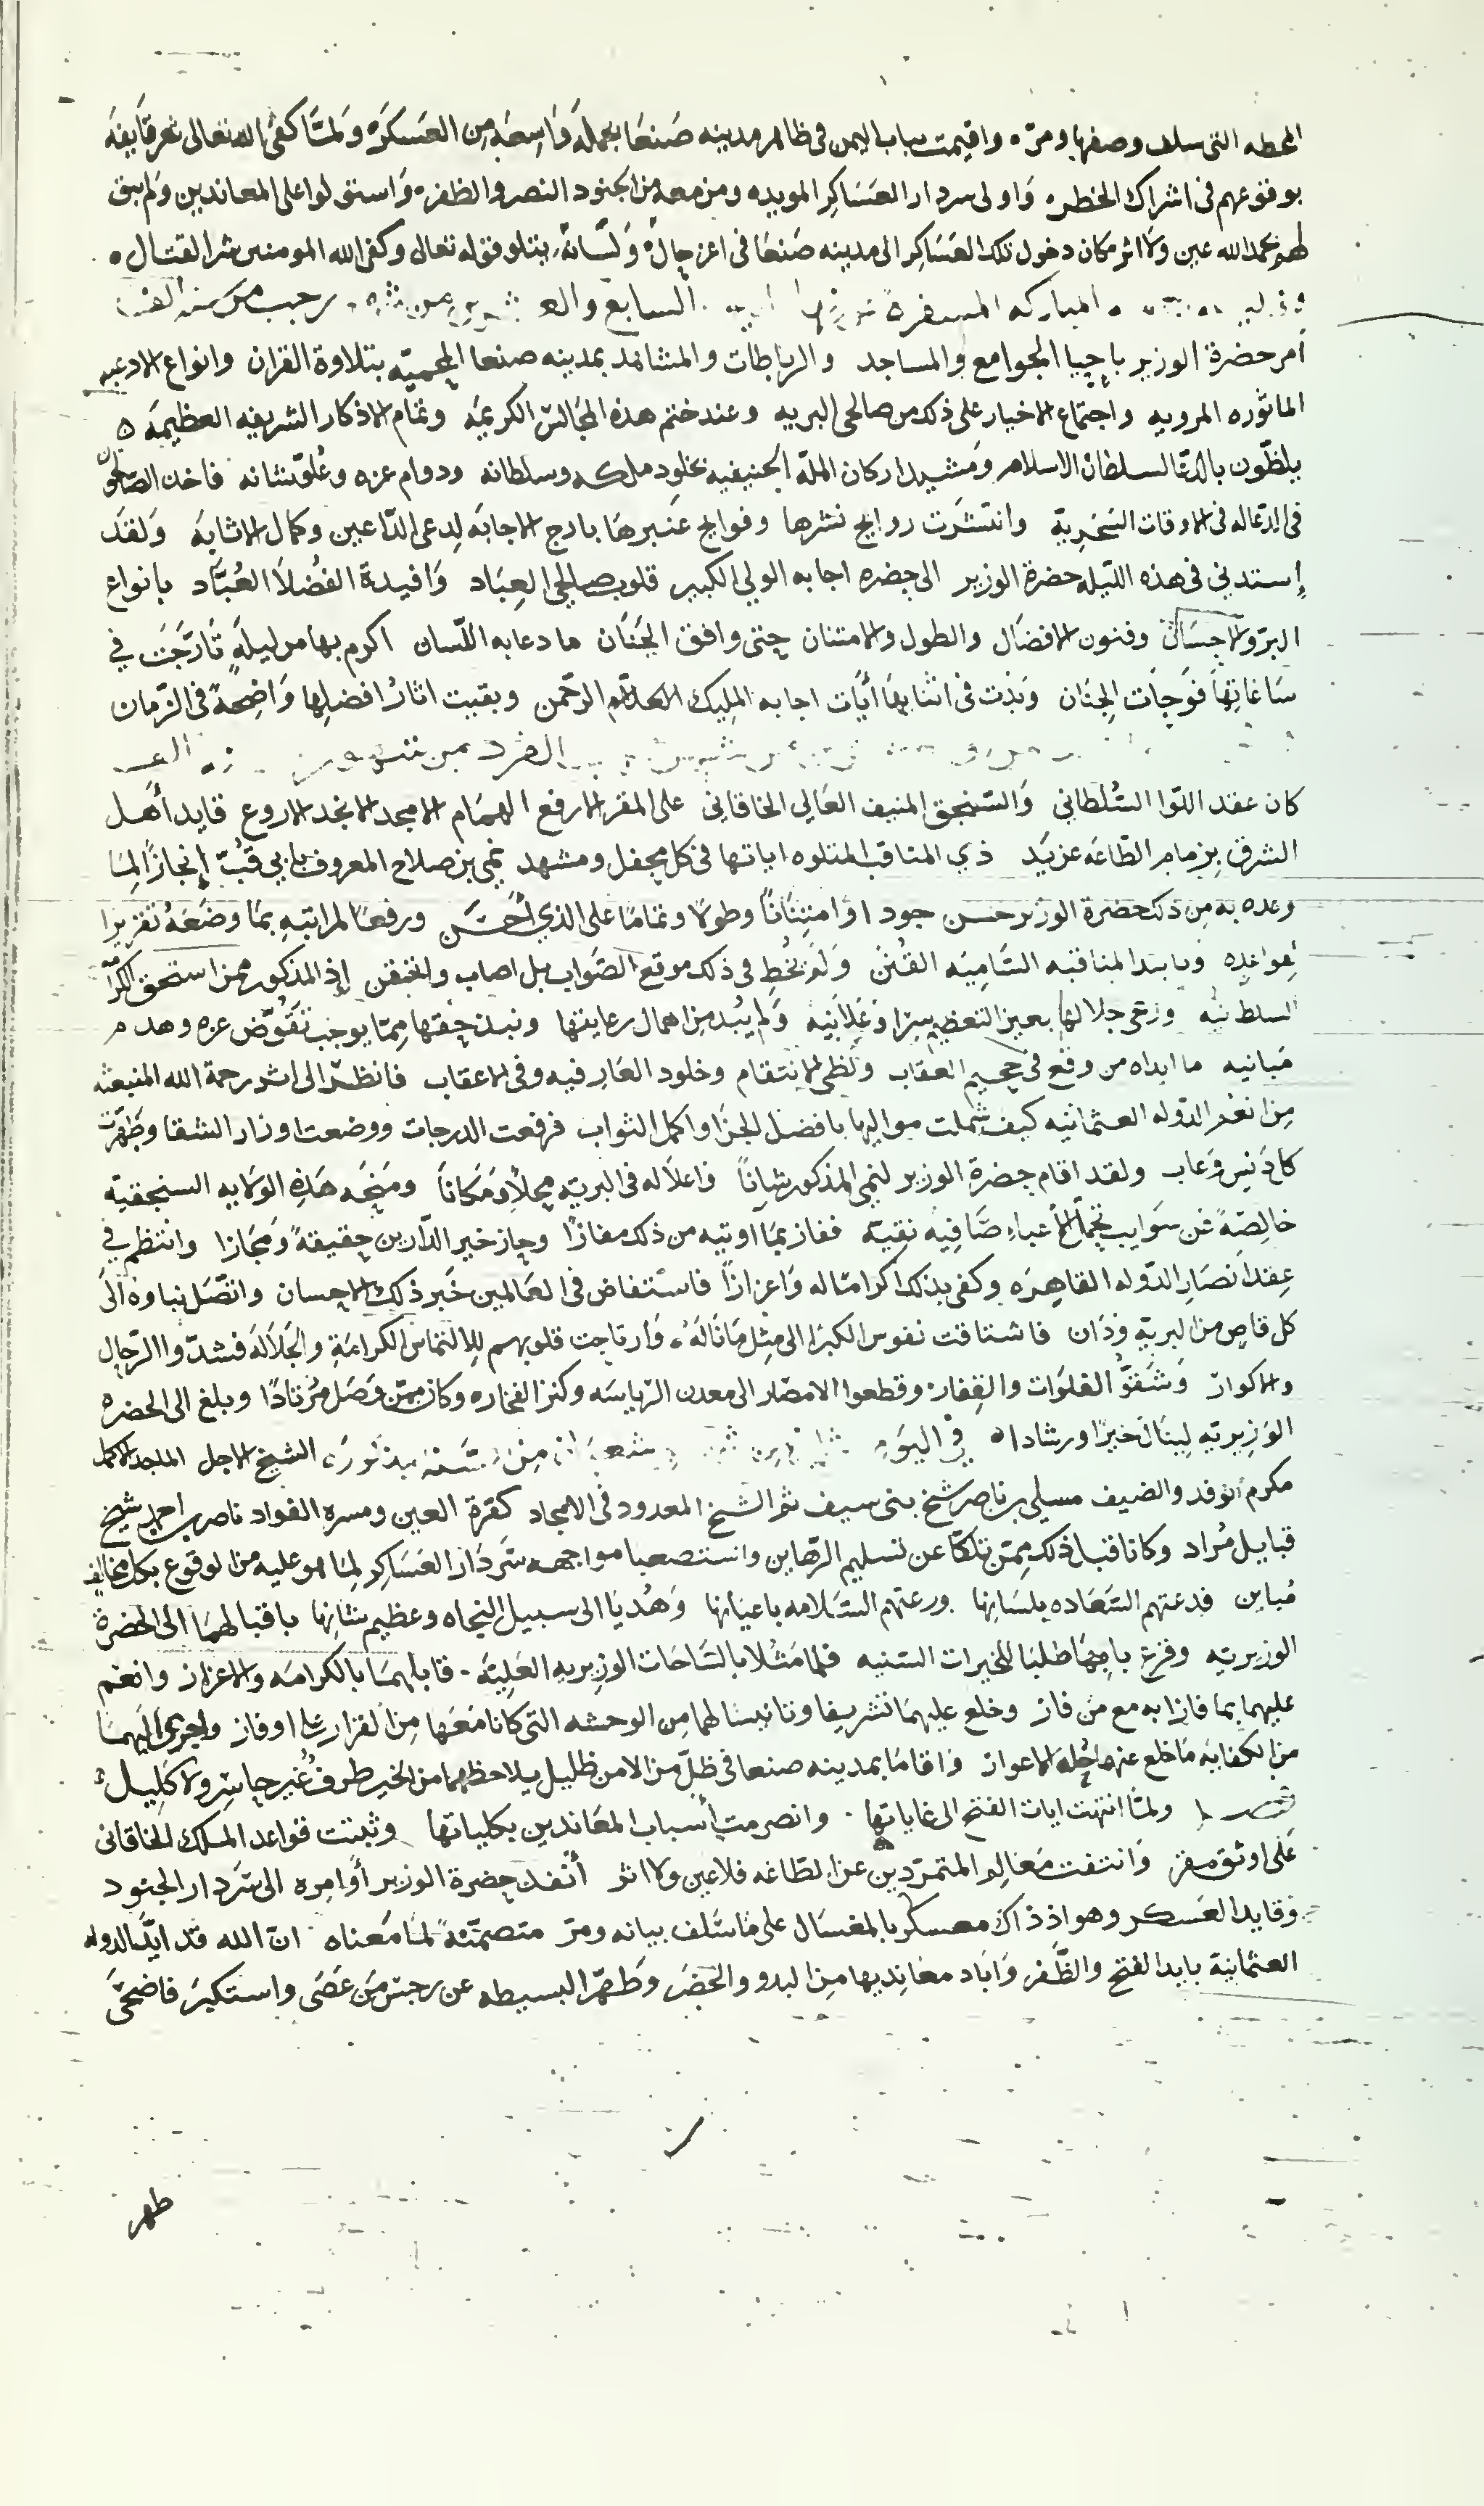 المحطه التى سلف وصفها ومرّه واقيمت بباب اليمن فى ظاهر مدينه صَنعَا بجملَة وَاسِعَه مِن العَسكره وَلمّا كفى الله تعالى شر
بوقوعهم فى اشراك الخطر وَاولى سردار العَسَاكِر المويده ومن معه من الجنود النصر والظفر وَاستولوا على المعاندين وَلم يبق
لهم بحمد الله عين وَلا اثر مكان دخول تلك العَسَاكِر الى مدينه صَنعَا فى اعز حال وَلسَانهُ يتلو قوله تعالى وكفى الله المومنين شر القتال
المباركه المسفرة السابع والعشرين من شهر رجب من سنه
أمر حضرة الوزير باحِيا الجوامع والمساجد والرباطات والمشاهد بمدينه صنعا المحميّه بتلاوة القران وانواع الادعيه
الماثوره المرويه واجتماع الاخيار على ذلك من صالحى البريه وعند ختم هذه المجالسْ الكريمَه وتمام الاذكار الشريفه العظيمَة
يلظّون بالدعَا لسلطان الاسلام وَمشيد اركان الملّه الحنيفيه بخلود ملكه وسلطانه ودوام عزه وعُلوّ شانه فاخذ الصَالحون
فى الدعَا له فى الاوقات السَحَرِيّة وانتشرَت روايح نشرها وفوايح عَنبرهَا بارج الاجابَه لِدعى الدَاعين وكمال الاثابَه وَلقَد
إستدنى فى هذه الليله حضرة الوزير الى حضره اجابه الولى الكبير قلوب صالحى العِبَاد وَافيدة الفُضلا العُبَّاد بانواع
البرّ والاحسَان وفنون الافضَال والطول والامتنان حتى وافق الجَنَان ما دعا به اللّسان اكرم بها من ليلةٍ تَارّجَت فى
سَاعَاتها فوحَات الجِنَان وَبدَت فى اثنايهَا أيَات اجابه المَلِيك العلاّم الرحّمن وبقيت اثارُ افضلها وَاضِحةً فى الزّمان
كان عقد اللوا السُّلطانى وَالسّنجق المنيف العَالى الخاقانى على المقر الارفع الهمَام الامجد الانجد الاروع قايد أهَل
الشرف بِزمام الطّاعَه عن يَد ذي المناقب المتلوه اياتها فى كل محِفل ومشهد يحيى بن صلاح المعروف بابى قبّ إنجازاً لِمَا
وعده به مِن ذلك حضرة الوزير حسن جودا وَامتِنَاناً وطولا وتمامًا على الذي أحسَن ورفعاً لمراتبهِ بمَا وضَعَهُ تقريرا
لقواعِده وَلَم يُخطِ فى ذلك موقع الصَواب بل اصاب إذ المذكور ممن استحق
السلطنه ورَعى جلالها بعين التعظيم سِرّا وَعَلانِيه وَلم يُبد من اهمال رعايتها ونبذ حِقّها مِمّا يوجب تَقَوّض عزه وهدم
مَبانيه ما ابداه من وقع فى جَحيم العقاب وَلظى الانتقام وخلود العَار فيه وفى الاعقاب فانظر الى اثر رحمة الله المنبعثه
مِن انعُم الدّوله العثمانيه كيف شملت مواليها بافضل الجزا واكمل الثواب فرفعت الدرجات ووضعت اوزار الشقا وطهّرت
كل دَنِس وَعاب ولقد اقام حضرة الوزير ليحيى المذكور شاناً واعلا له فى البريّه محلاً وَمكاناً ومَنحَه هَذِه الولايه السنجقيّه
خالِصَةً عَن شوايب تحمّل الأعباءِ صَافيه نقيّه ففاز بمَا اوتيه من ذلك مفازاً وحاز خير الدّارين حِقيقةً وَمجَازا وانتظم فى
عِقدِ أنصَار الدّوله القاهِرَه وكفى بذلك اكراما له وَاعزازاً فاستفاض فى العَالمين خَبر ذلك الاحسان واتّصَل نباوه الى
كل قاصٍ من البريّهِ وَدَان فاشتاقت نفوس الكبرَا الى مِثل مَا نالهُ، وَارتاحت قلوبهم للالتماس الكرامَةِ والجَلاله فشدّوا الرّحال
والاكوار وَشَقُّوا الفلوَات والقِفار وقطعوا الامصَار الى معدن الرّياسَه وكنز الفخاره وكان ممّن وَصَل مُرتادًا وبلغ الى الحضره
الوَزيريّه لِينال خيرًا ورشاداه فى اليَوم شعبان مِن السَّنة المذكورَه الشيخ الاجل الماجد الاكمل
مكرم الوفد والضيف مسلى بن ناصر شيخ بنى سيف ثم الشيخ المعدود فى الامجاد كقرة العين ومسره الفواد ناصر بن احمد شيخ
قبايل مُراد وكانا قبل ذلك مِمّن تلكّا عن تسليم الرّهاين واستصعبا مواجهه سَردَار العَسَاكِر لِمَا هو عليه من الوقوع بكل مخالف
مُباين فدعتهم السَعَاده بلسَانها ورعتهم السَلامه باعيانها وَهُديَا الى سبيل النجاه وعظيم شانها باقبالهمَا الى الحضرة
الوزيريّه طلبًا للخيرات السّنيه فلمّا مَثُلا بالسَاحَات الوزيريه العَلِيّه قابلهمَا بالكرامَه والاعزاز وانعَم
عليهما بما فازا به مع من فاز وخلع عليهمَا تشريفا وتانيسا لهما مِن الوحشه التى كانا مَعَها مِن القرار على اوفاز واجرى اليهمَا
من الكفايه مَا خلع عنهما حُلّه الاعواز وَاقامَا بمدينه صنعا فى ظلّ من الامن ظليل يلاحظهما من الخير طرفٌ غير حاسِر ولا كليل
ولمّا انتهت ايات الفتح الى غاياتها وانصرمت أسباب المعَاندين بكلياتها وثبتت قواعد الملك الخاقانى
عَلى اوثق مقر وَانتفت مَعَالِم المتمرّدين عن الطّاعه فلا عين ولا اثر أنفذ حضرة الوزير أوَامِره الى سَردار الجنود
وقايد العَسكر وهو اذ ذاك معسكر بالمغسَال على مَا سَلف بيانه ومرّ متضمّنةً لمَا مَعناه انّ الله قد ايَّد الدوله
العثمانية بايد الفتح والظَّفر وَابَاد معَانِديها مِن البدو والحَضَر وَطهّر البسيطه عن رجسْ مَن عَصَى واستكبرَ فاضحَى
طهر